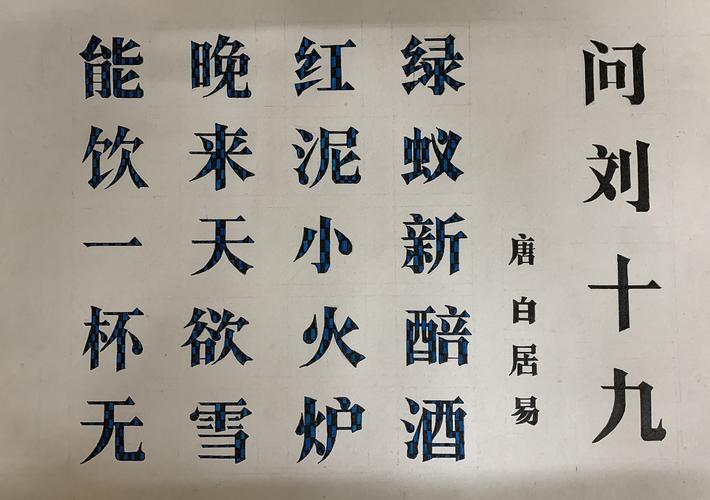 问刘十九
唐白居易
绿蚁新醅酒
红泥小火炉
晚来天欲雪
能饮一杯无